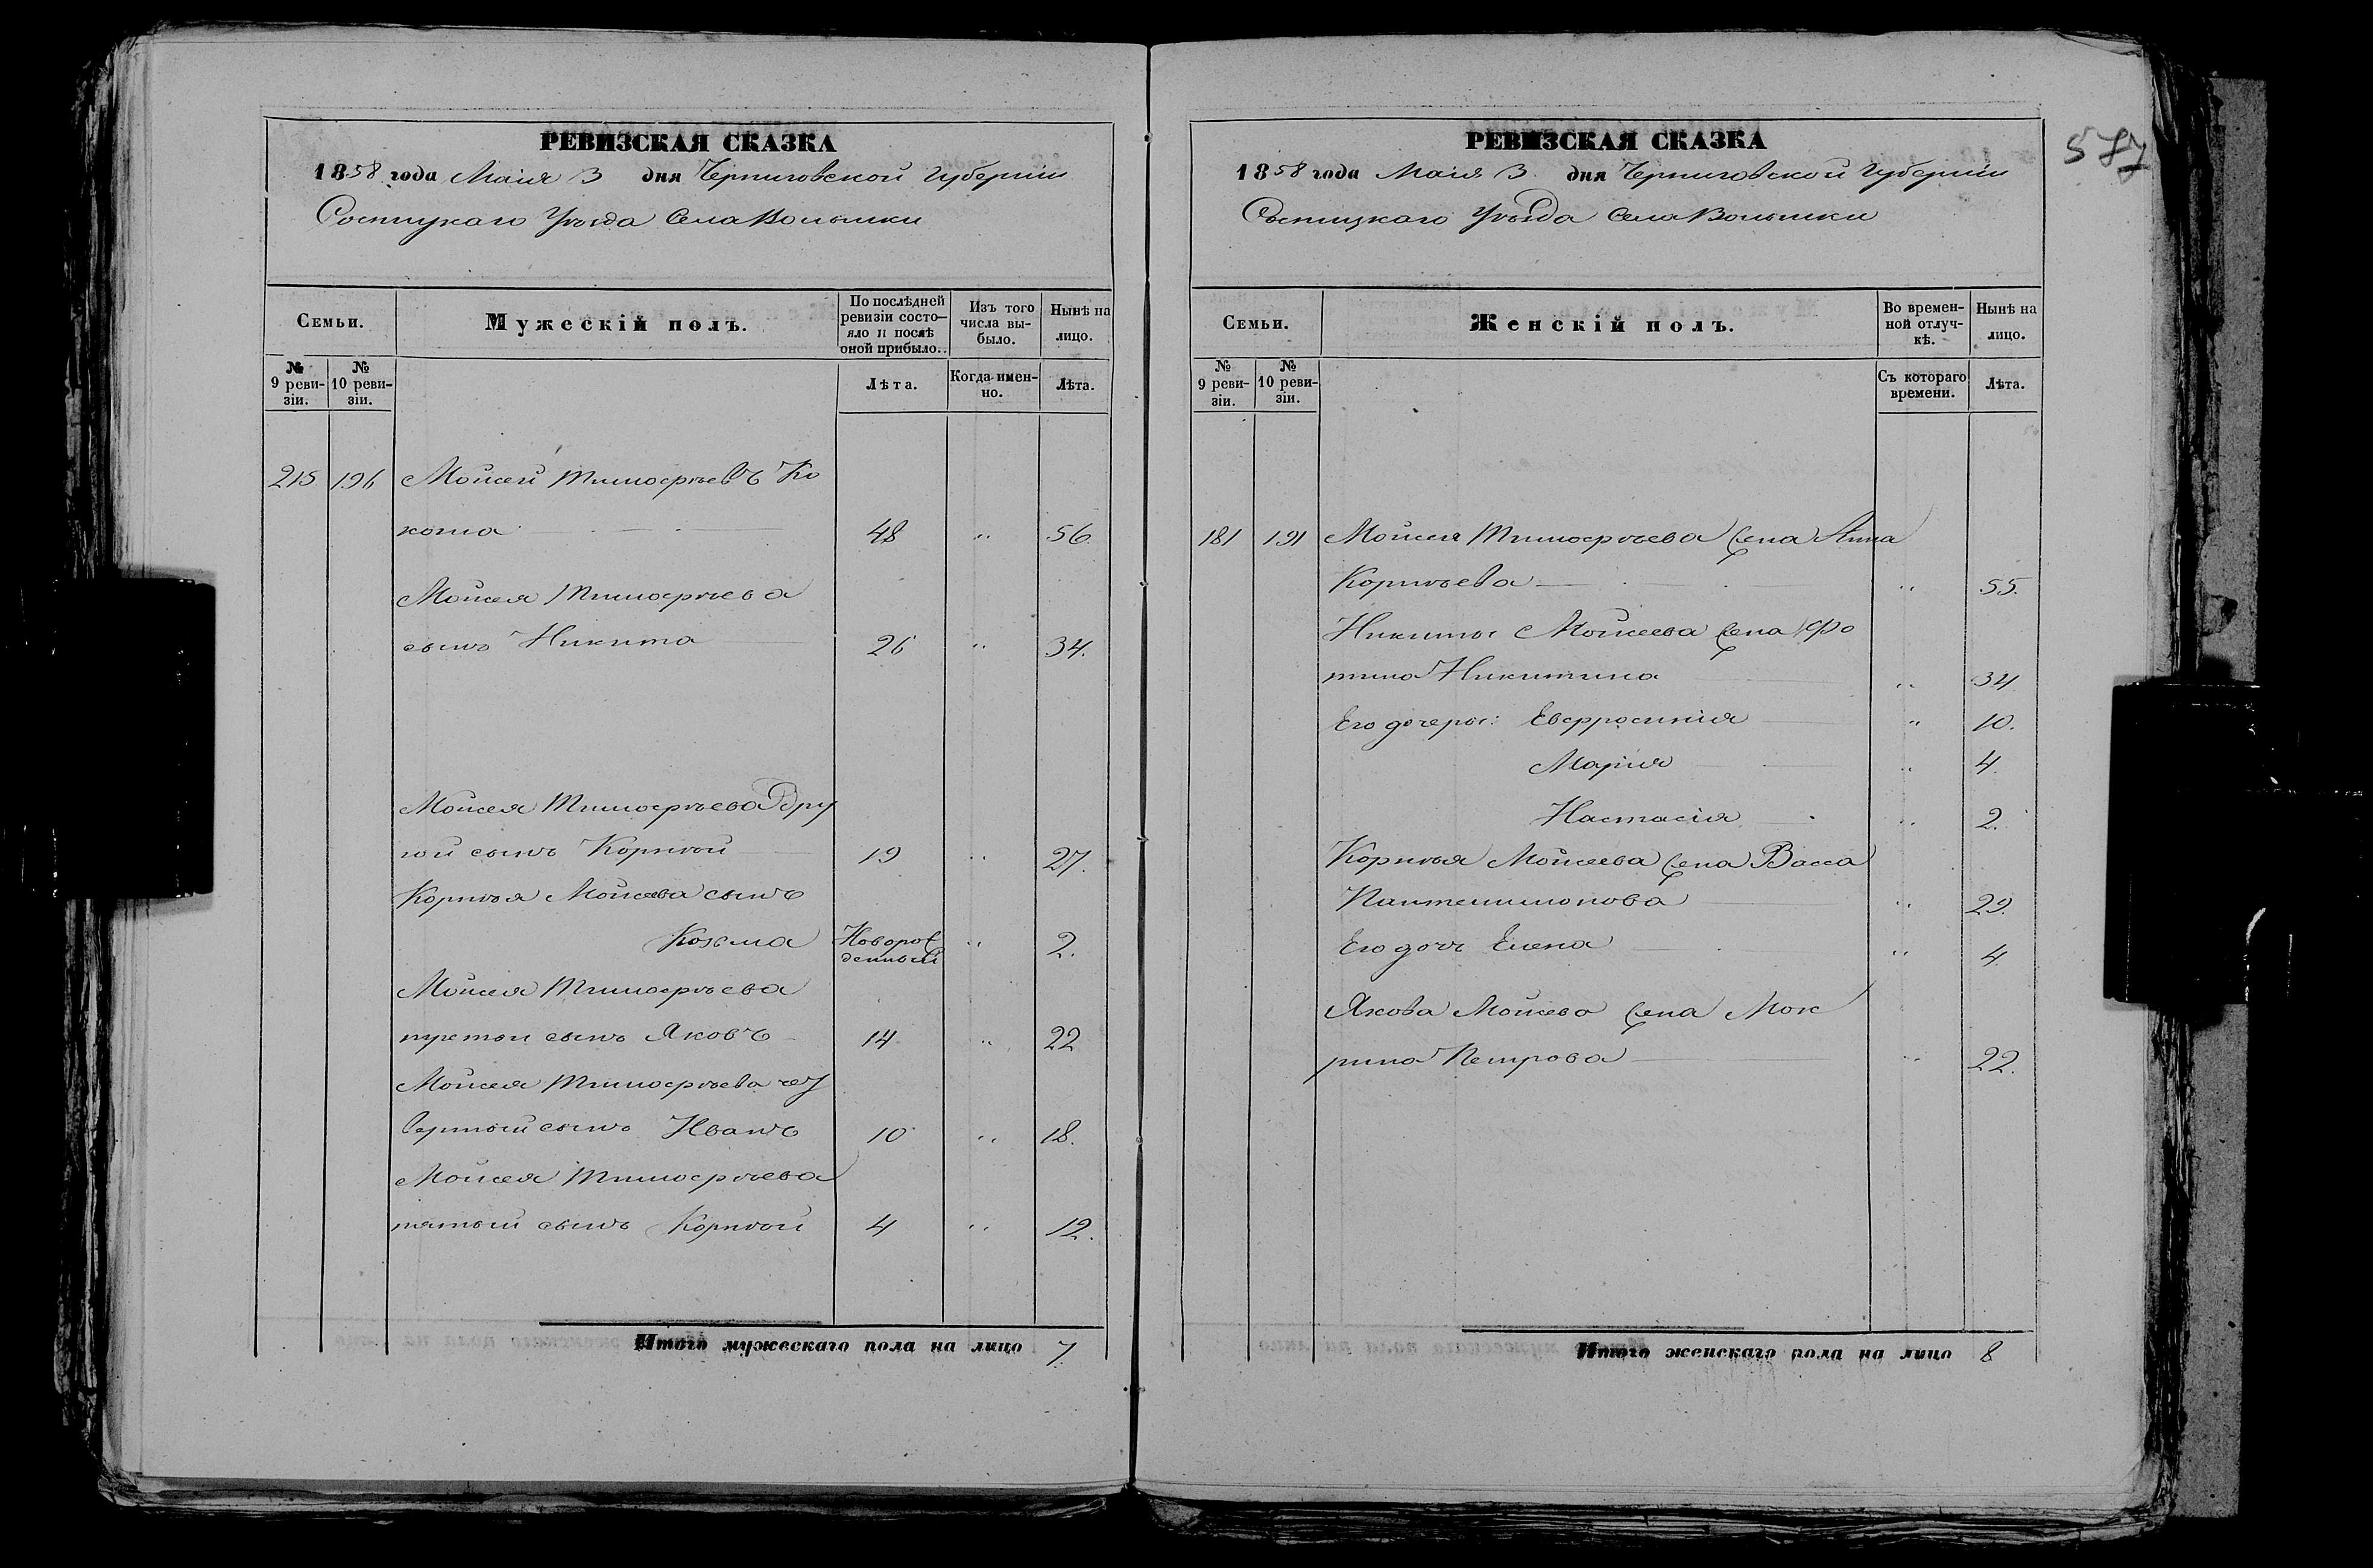 РЕВИЗСКАЯ СКАЗКА
1858 года Маія 3 дня Черниговской Губерніи
Сосницкаго Уѣзда Села Волынки
Семьи.
Мужескій полъ.
По послѣдней ревизіи состояло и послѣ оной прибыло.
Изъ того числа выбыло.
Нынѣ на лицо.
№ 9 ревизіи.
№ 10 ревизіи.
Лѣта.
Когда именно.
Лѣта.
215 196 Мойсей Тимофѣевъ Ко
коша 48 „ 56.
Мойсея Тимофѣева
сынъ Никита 26 „ 34.
Мойсея Тимофѣева Дру
гой сынъ Корнѣй 19 „ 27.
Корнѣя Мойсеева сынъ
Козьма Новорож
денный „ 2.
Мойсея Тимофѣева
третій сынъ Яковъ 14 „ 22
Мойсея Тимофѣева чет
вертый сынъ Иванъ 10 „ 18.
Мойсея Тимофѣева
пятый сынъ Корнѣй 4 „ 12.
Итого мужескаго пола на лицо 7.
577
РЕВИЗСКАЯ СКАЗКА
1858 года Маія 3 дня Черниговской Губерніи
Сосницкаго Уѣзда Села Волынки
Семьи.
Женскій полъ.
Во временной отлучкѣ.
Нынѣ на лицо.
№ 9 ревизіи.
№ 10 ревизіи.
Съ котораго времени.
Лѣта.
181 191 Мойсея Тимофѣева жена Анна
Корнѣева „ 55.
Никиты Мойсеева жена Фо
тина Никитина „ 34.
Его дочеры: Евфросинія „ 10.
Марія „ 4.
Настасія „ 2.
Корнѣя Мойсеева жена Васса
Пантелимонова „ 29.
Его дочь Елена „ 4.
Якова Мойсева жена Мок
рина Петрова „ 22.
Итого женскаго пола на лицо 8